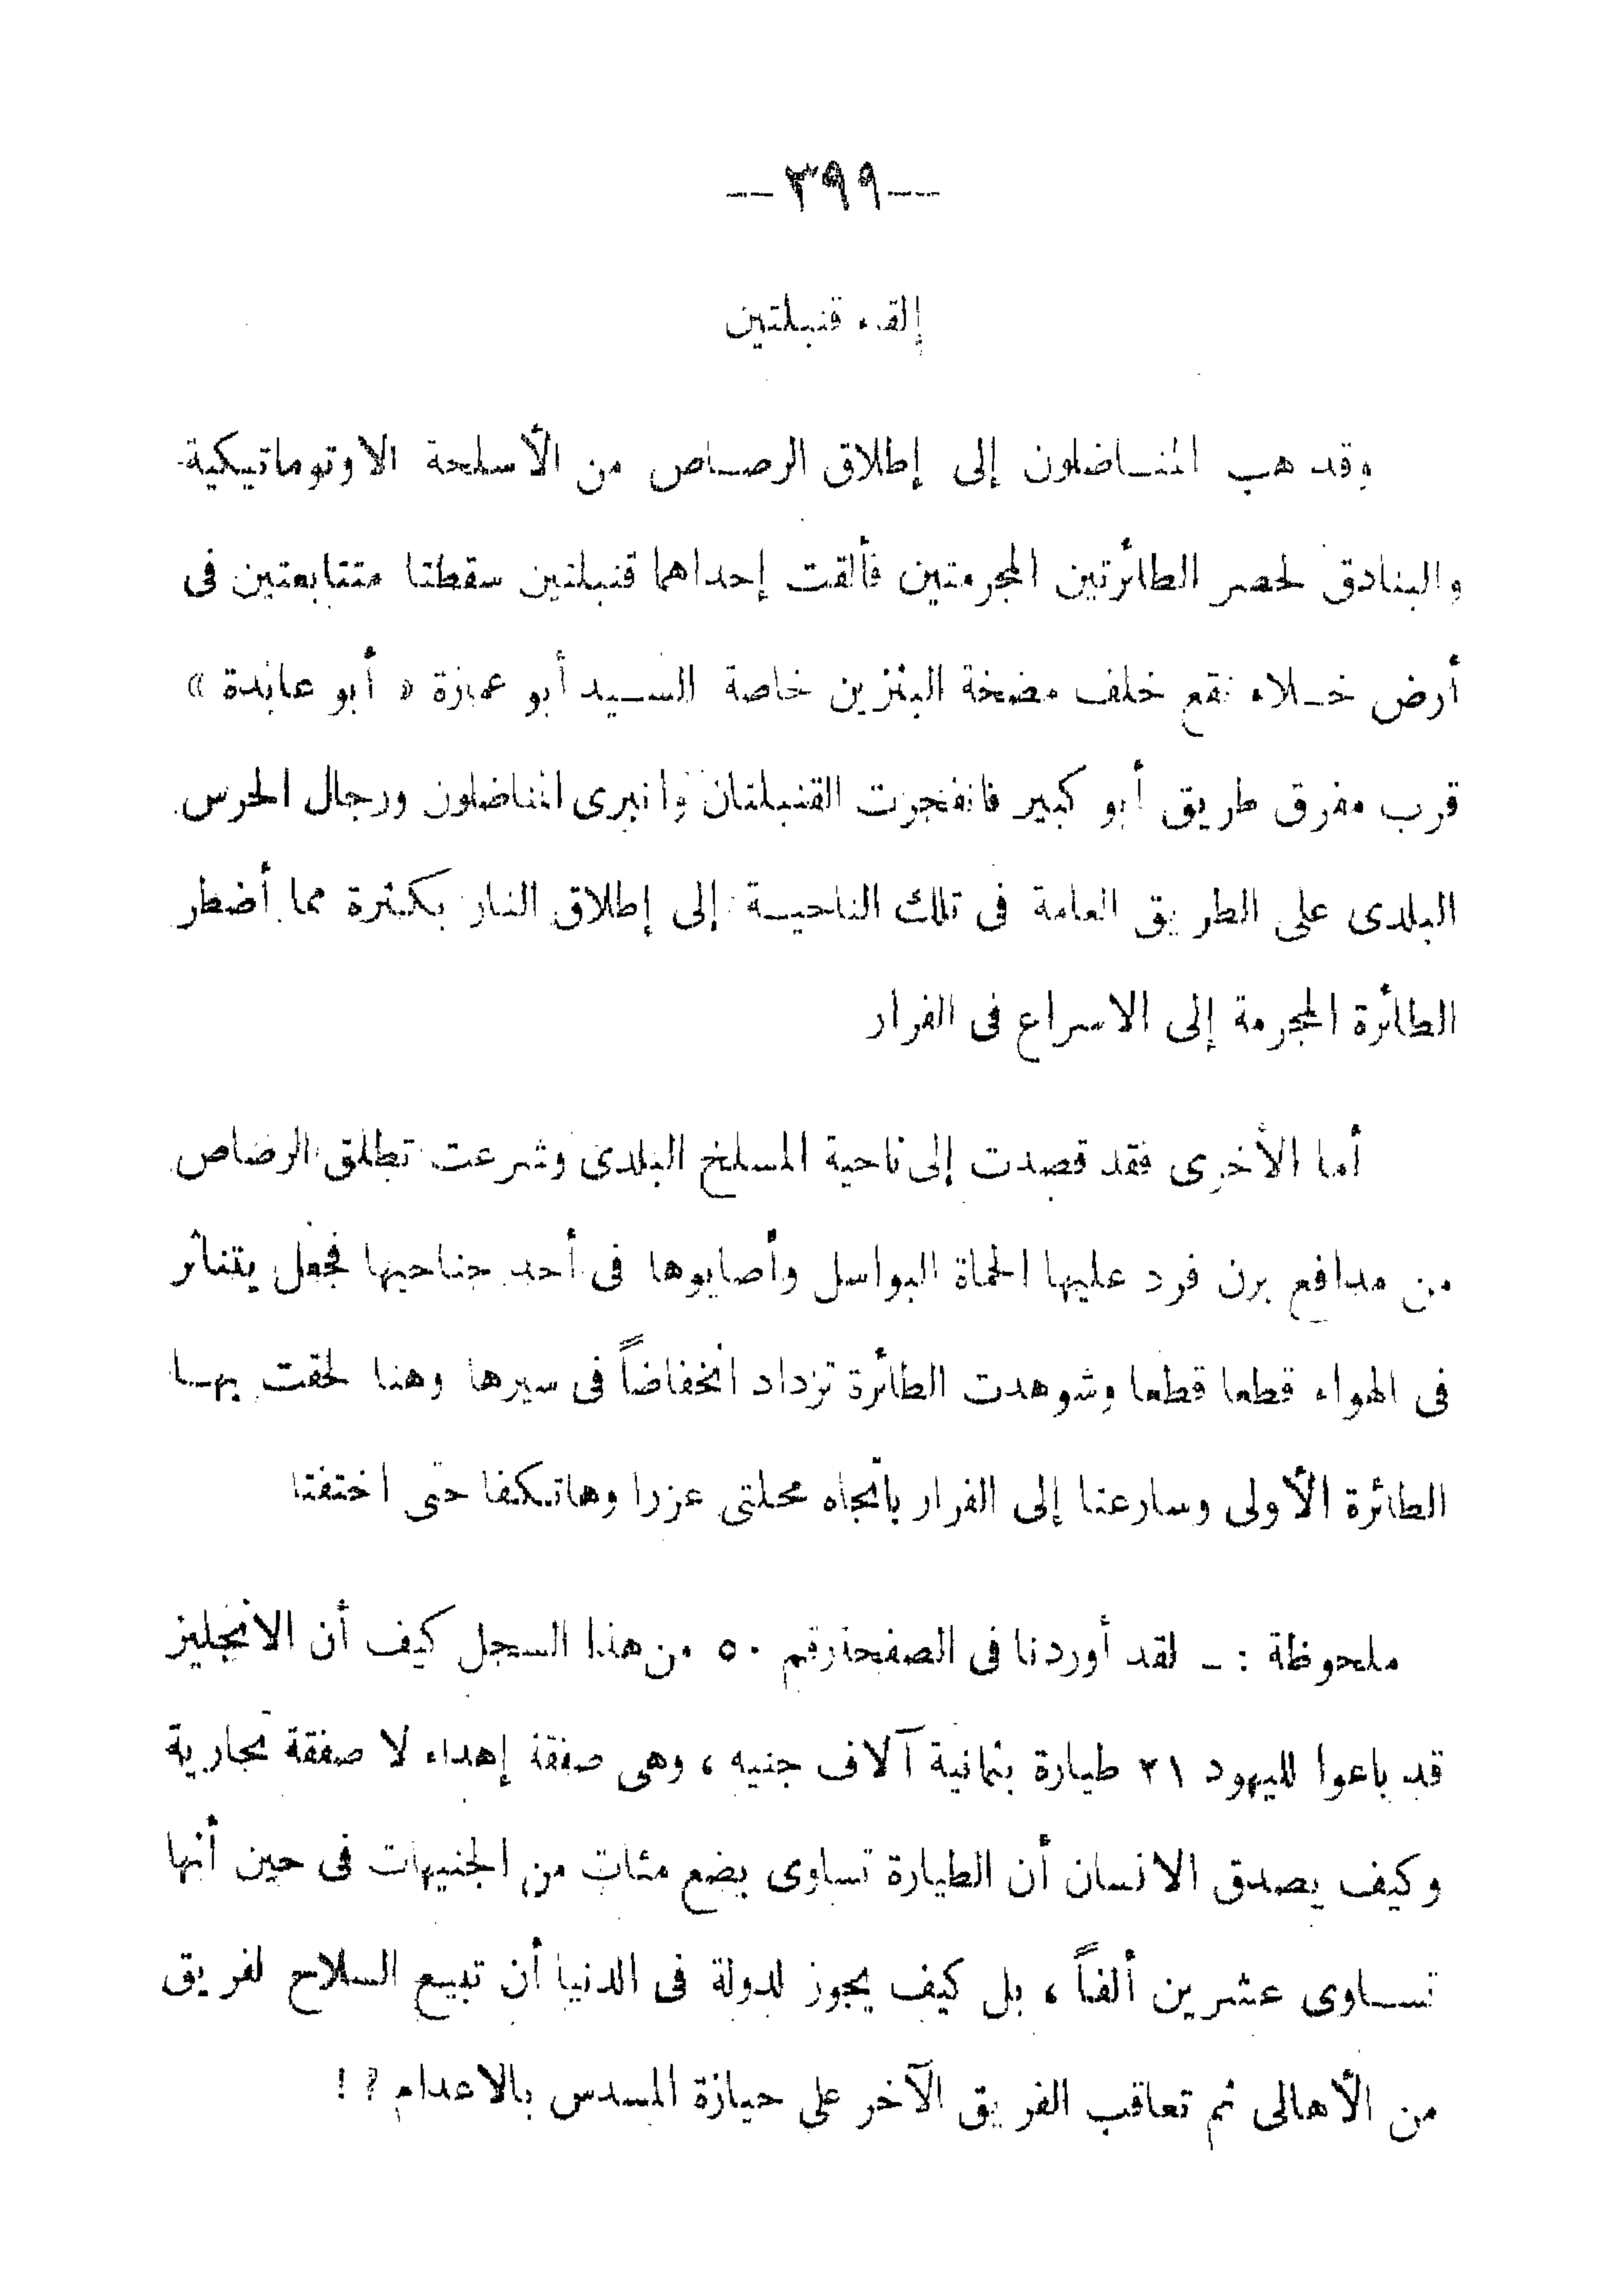 —٣٩٩—
إلقاء قنبلتين
وقد هب المناضلون إلى إطلاق الرصاص من الأسلحة الاوتوماتيكية
والبنادق لحصر الطائرتين المجرمتين فألقت إحداهما قنبلتين سقطتا متتابعتين فى
أرض خلاء تقع خلف مضخة البنزين خاصة السيد أبو عمزة « أبو عابدة »
قرب مفرق طريق أبو كبير فانفجرت القنبلتان وانبرى المناضلون ورجال الحرس
البلدى على الطريق العامة فى تلك الناحية إلى إطلاق النار بكثرة مما أضطر
الطائرة المجرمة إلى الاسراع فى الفرار
أما الأخرى فقد قصدت إلى ناحية المسلخ البلدى وشرعت تطلق الرصاص
من مدافع برن فرد عليها الحماة البواسل وأصابوها فى أحد جناحيها فجعل يتناثر
فى الهواء قطعا قطعا وشوهدت الطائرة تزداد انخفاضاً فى سيرها وهنا لحقت بها
الطائرة الأولى وسارعتا إلى الفرار باتجاه محلتى عزرا وهاتكفا حتى اختفتا
ملحوظة : – لقد أوردنا فى الصفحة رقم ٥٠ من هذا السجل كيف أن الانجليز
قد باعوا لليهود ٢١ طيارة بثمانية آلاف جنيه ، وهى صفقة إهداء لا صفقة تجارية
وكيف يصدق الانسان أن الطيارة تساوى بضع مئات من الجنيهات فى حين أنها
تساوى عشرين ألفاً ، بل كيف يجوز لدولة فى الدنيا أن تبيع السلاح لفريق
من الأهالى ثم تعاقب الفريق الآخر على حيازة المسدس بالاعدام ؟ !